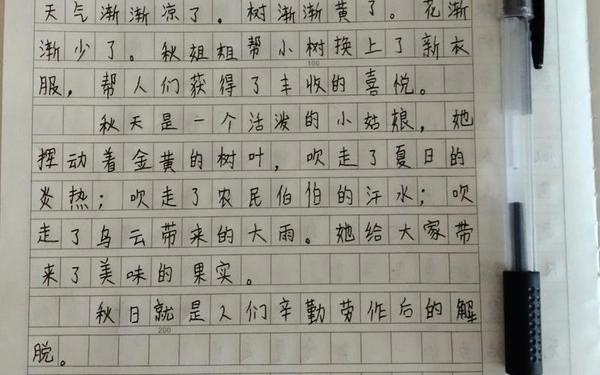 天气渐渐凉了。树渐渐黄了。花渐
渐少了。秋姐姐帮小树换上了新衣
100
服，帮人们获得了丰收的喜悦。
秋天是一个活泼的小姑娘，她
挥动着金黄的树叶，吹走了夏日的
炎热；吹走了农民伯伯的汗水；吹
走了乌云带来的大雨。她给大家带
来了美味的果实。
秋日就是人们辛勤劳作后的解
200
脱。